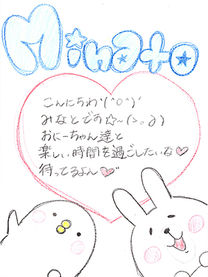 Minato
こんにちわ'(^o^)'
みなとです☆~(>。∂)
おにーちゃん達と
楽しい時間を過ごしたいな♡
待ってるよん♡"